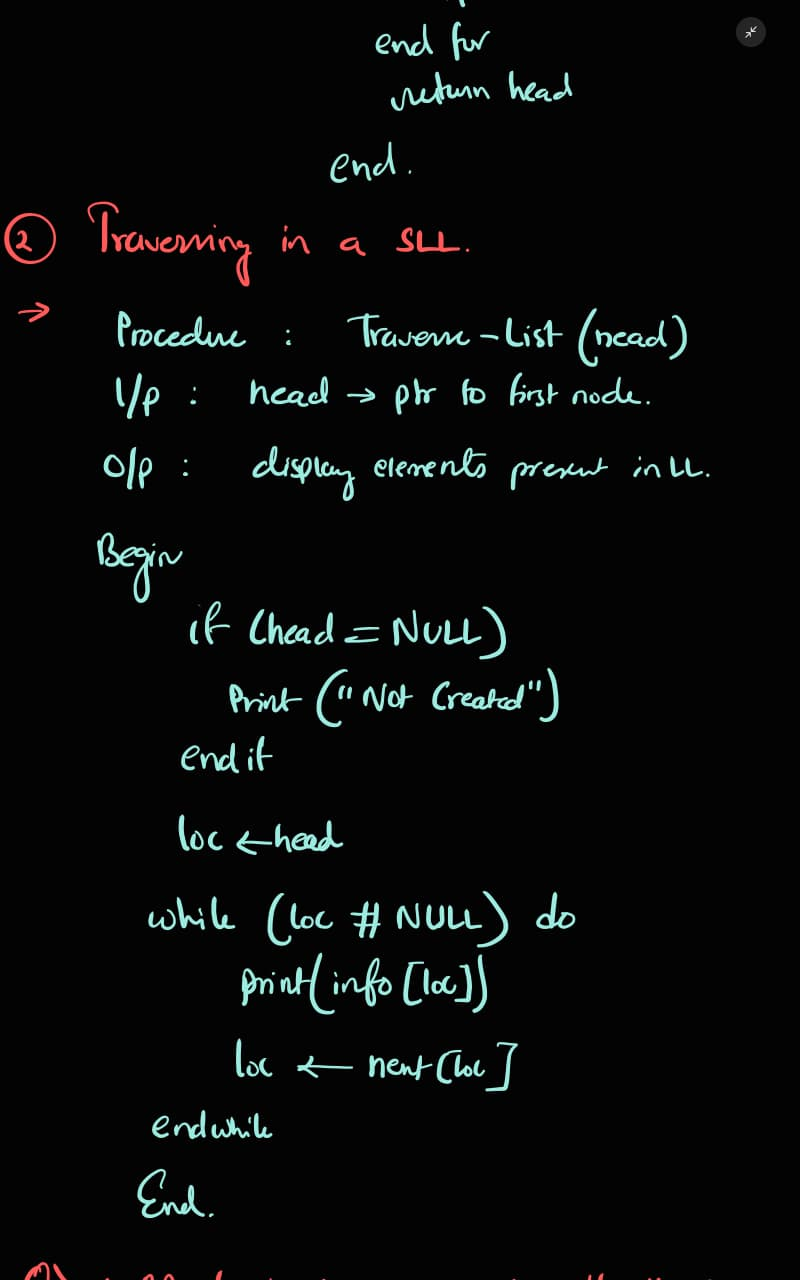 end for
return head
end.
② Traversing in a SLL.
→ Procedure : Traverse-List (head)
I/p : head → ptr to first node.
O/p : display elements present in LL.
Begin
if (head = NULL)
Print ("Not Created")
end if
loc ← head
while (loc # NULL) do
print(info[loc])
loc ← next[loc]
endwhile
End.